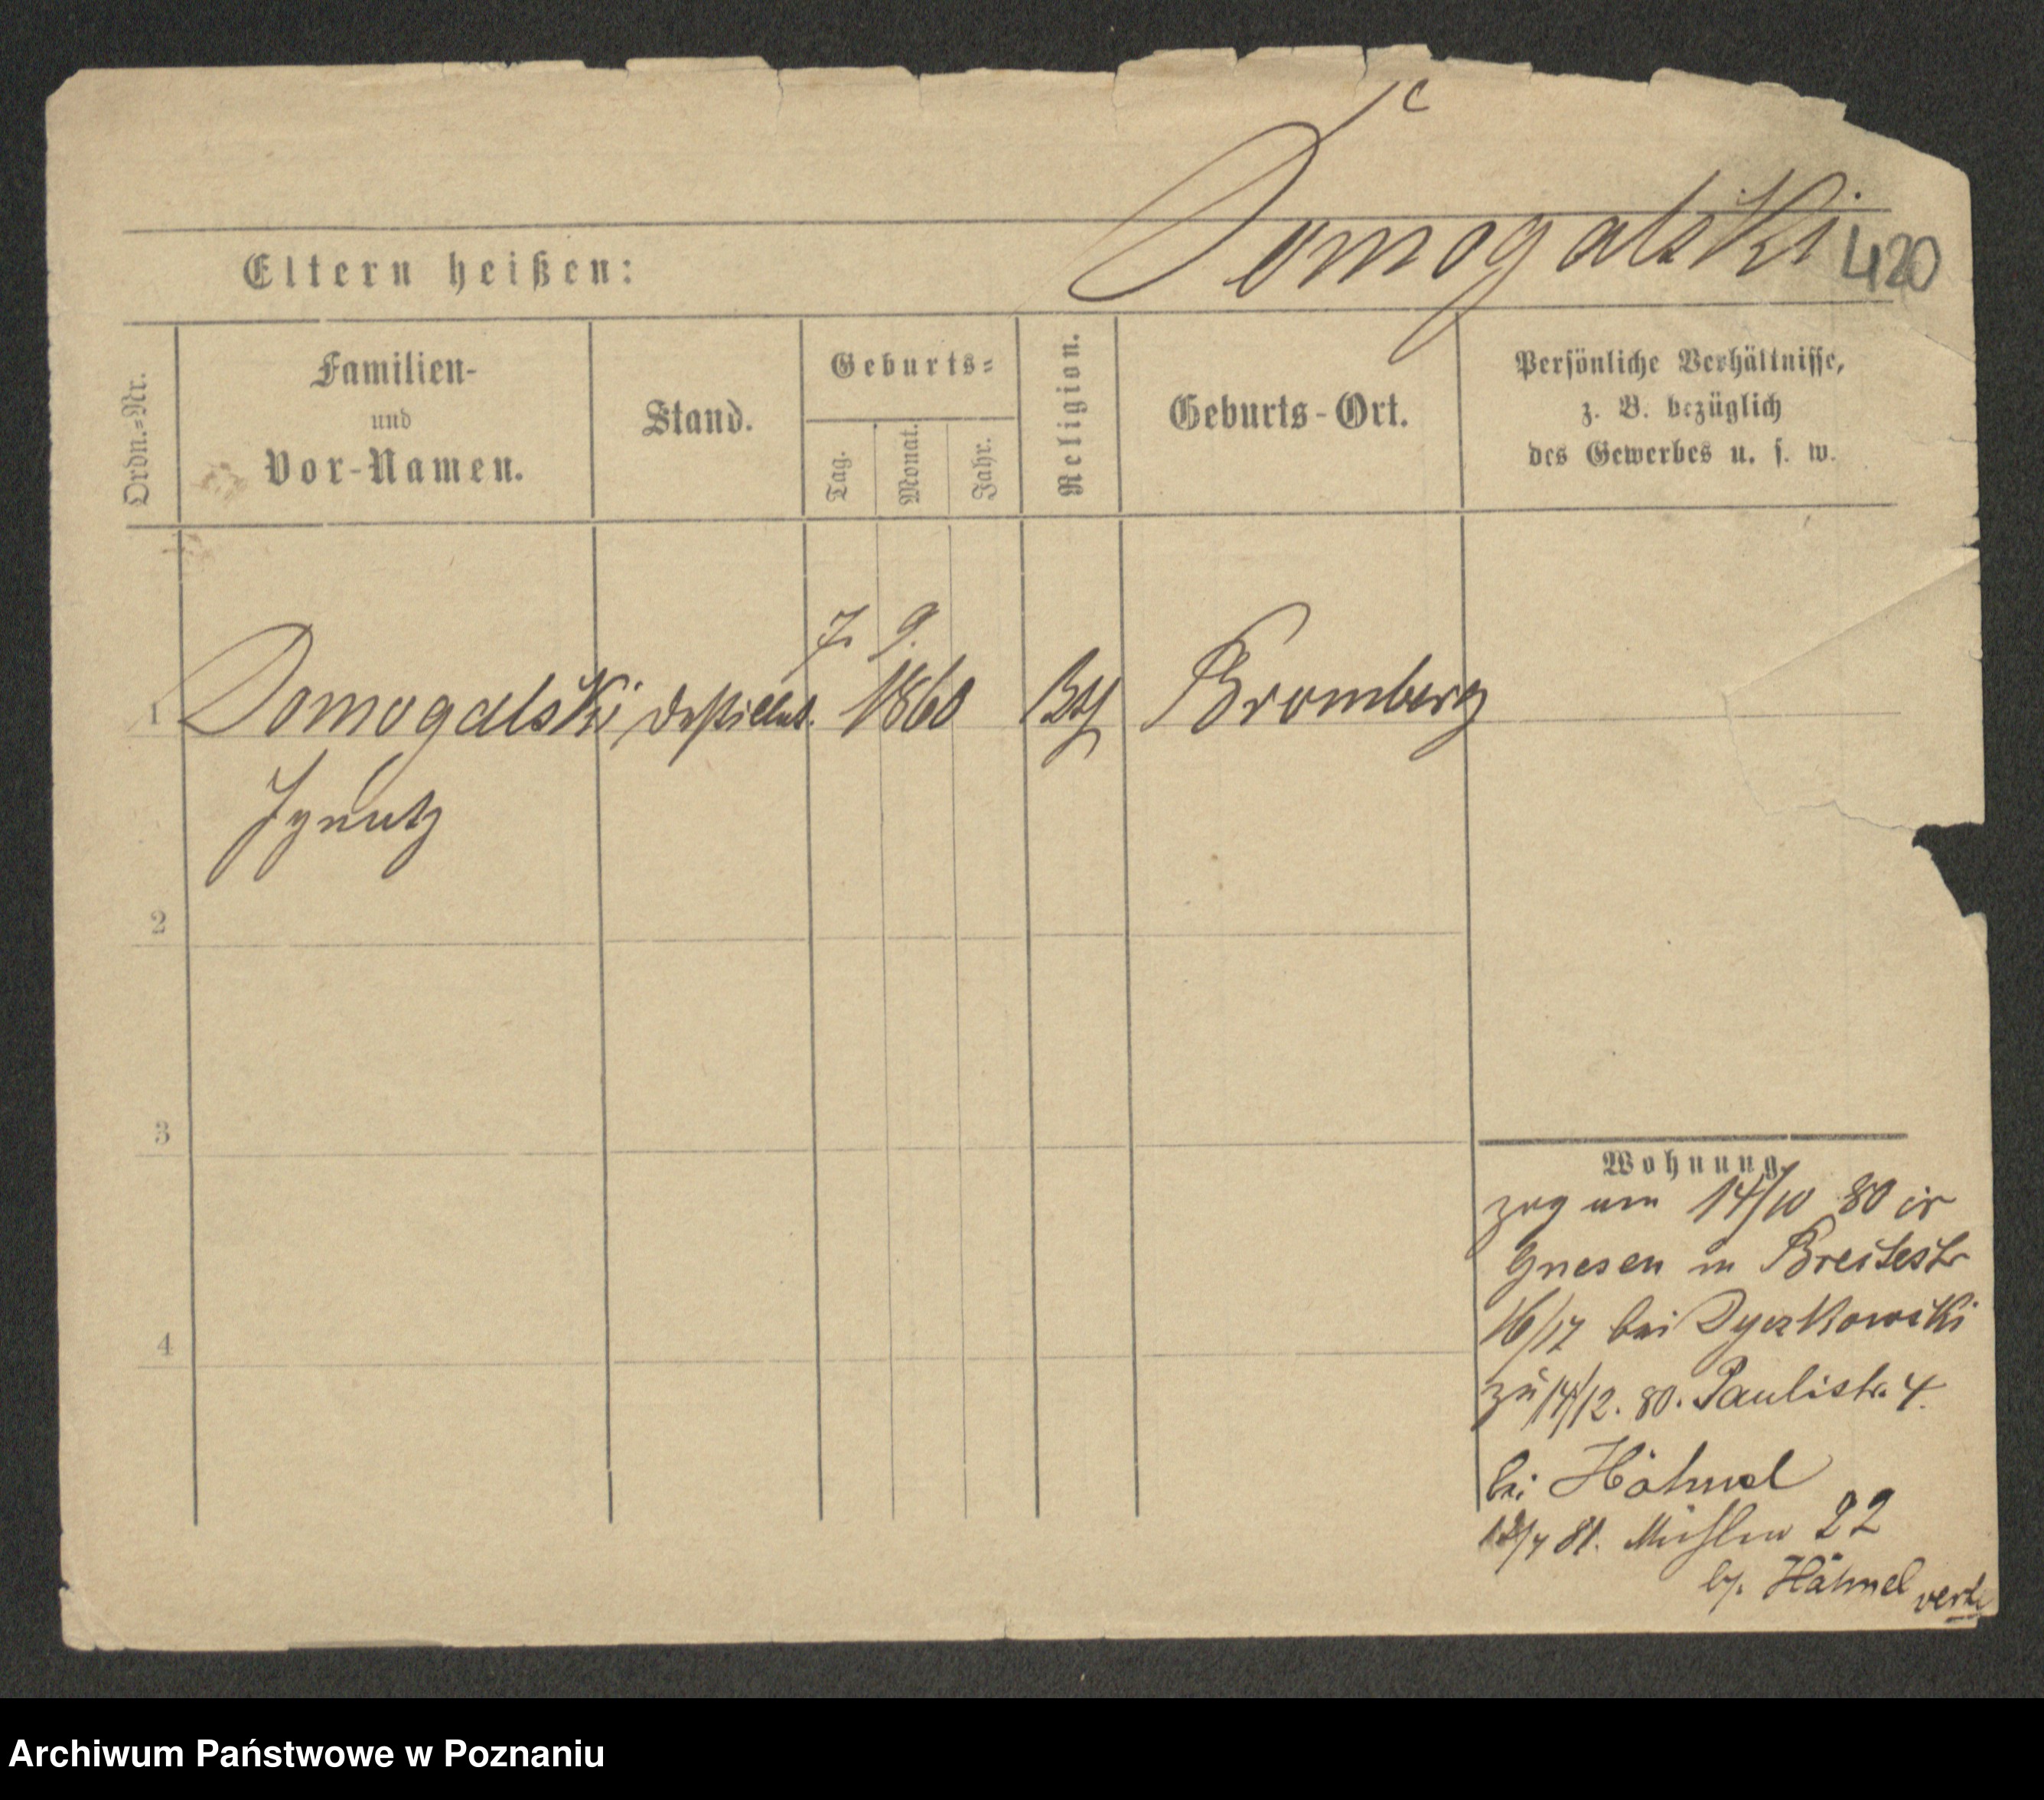 Domogalski 420
Eltern heißen:
Ordn.-Nr.
Familien-
und
Vor-Namen.
Stand.
Geburts-
Tag.
Monat.
Jahr.
Religion.
Geburts-Ort.
Persönliche Verhältnisse,
z. B. bezüglich
des Gewerbes u. s. w.
7. 9.
1 Domogalski 1860 Bromberg
Ignatz
2
3
4
Wohnung.
zog am 14/10 80
Gnesen in Breitestr
16/17 bei
14/12. 80. Paulistr. 4.
bei Hähnel
81. Mühlen 22
b/. Hähnel
Archiwum Państwowe w Poznaniu